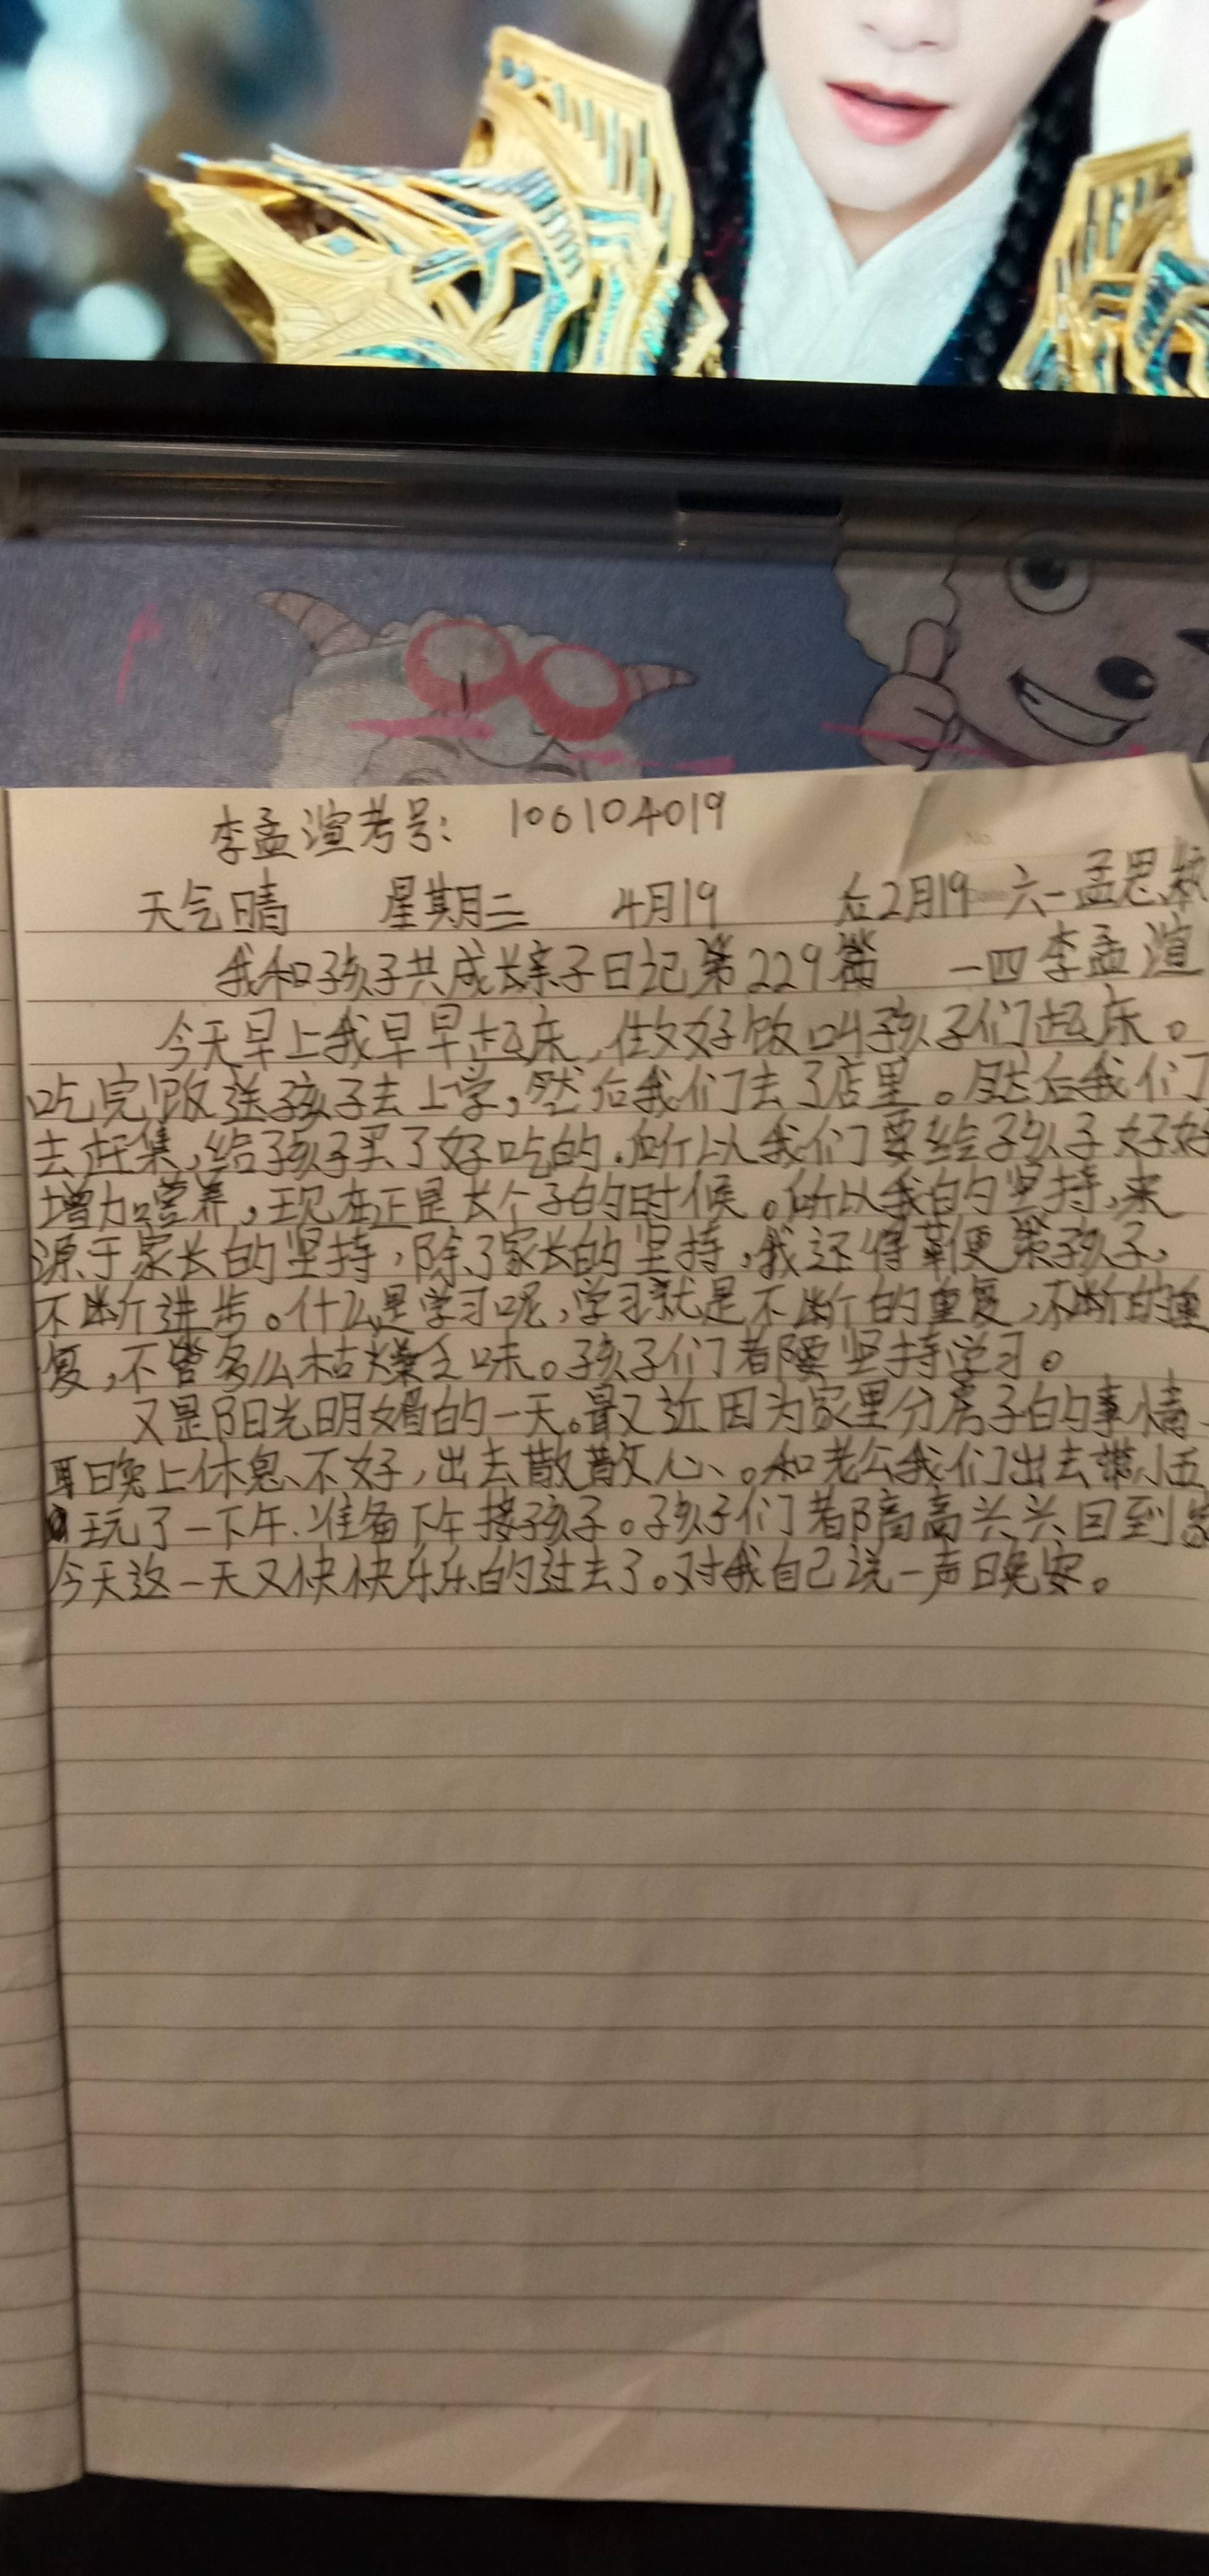 李孟渲考号：106104019
天气晴 星期二 4月19 农2月19 六一孟思
我和孩子共成长亲子日记第229篇 一四李孟渲
今天早上我早早起床，做好饭叫孩子们起床。
吃完饭送孩子去上学，然后我们去了店里。然后我们
去赶集，给孩子买了好吃的.所以我们要给孩子好好
增加营养，现在正是长个子的时候。所以我的坚持，来
源于家长的坚持，除了家长的坚持，我还得鞭策孩子，
不断进步。什么是学习呢，学习就是不断的重复，不断的重
复，不管多么枯燥乏味。孩子们都要坚持学习。
又是阳光明媚的一天。最近因为家里分房子的事情
晚上休息不好，出去散散心、。和老公我们出去带小五
玩了一下午.准备下午接孩子。孩子们都高高兴兴回到家
今天这一天又快快乐乐的过去了。对我自己说一声晚安。